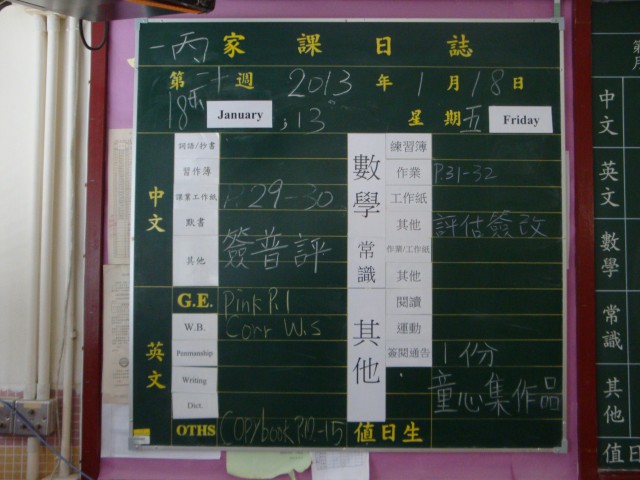 一丙 家課日誌
第二十週 2013年1月18日
18 January ,13 星期五 Friday
中文
詞語/抄書
習作簿
課業工作紙 P.29-30
默書
其他 簽普評
英文
G.E. Pink P.1
W.B. Corr W.S
Penmanship
Writing
Dict.
OTHS Copybook P.12-15
數學
練習簿
作業 P.31-32
工作紙
其他 評估簽改
常識
作業/工作紙
其他
其他
閱讀
運動
簽閱通告 1份
童心集作品
值日生
中文
英文
數學
常識
其他
值日